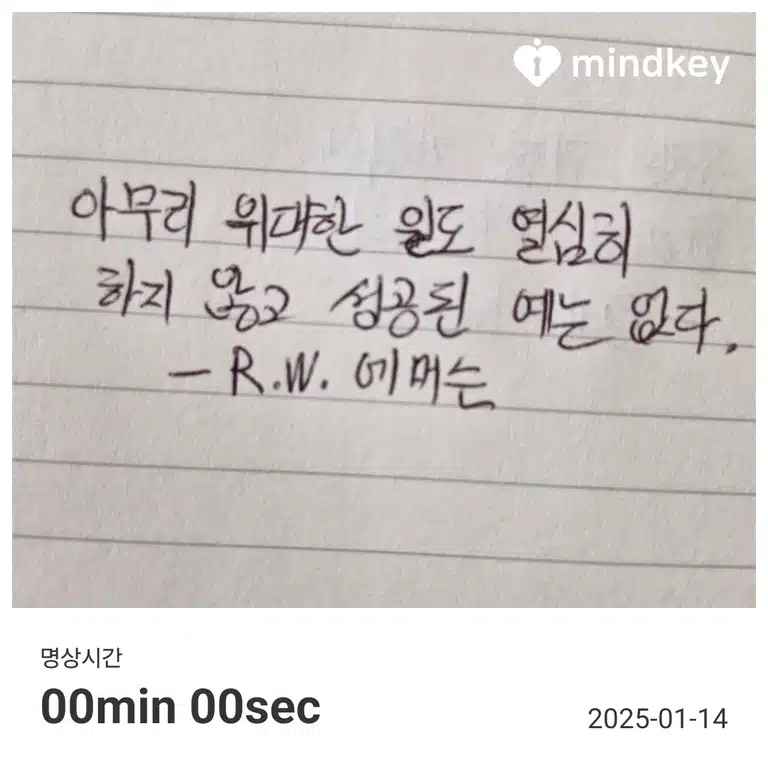 mindkey
아무리 위대한 일도 열심히
하지 않고 성공된 예는 없다.
- R.W. 에머슨
명상시간
00min 00sec
2025-01-14